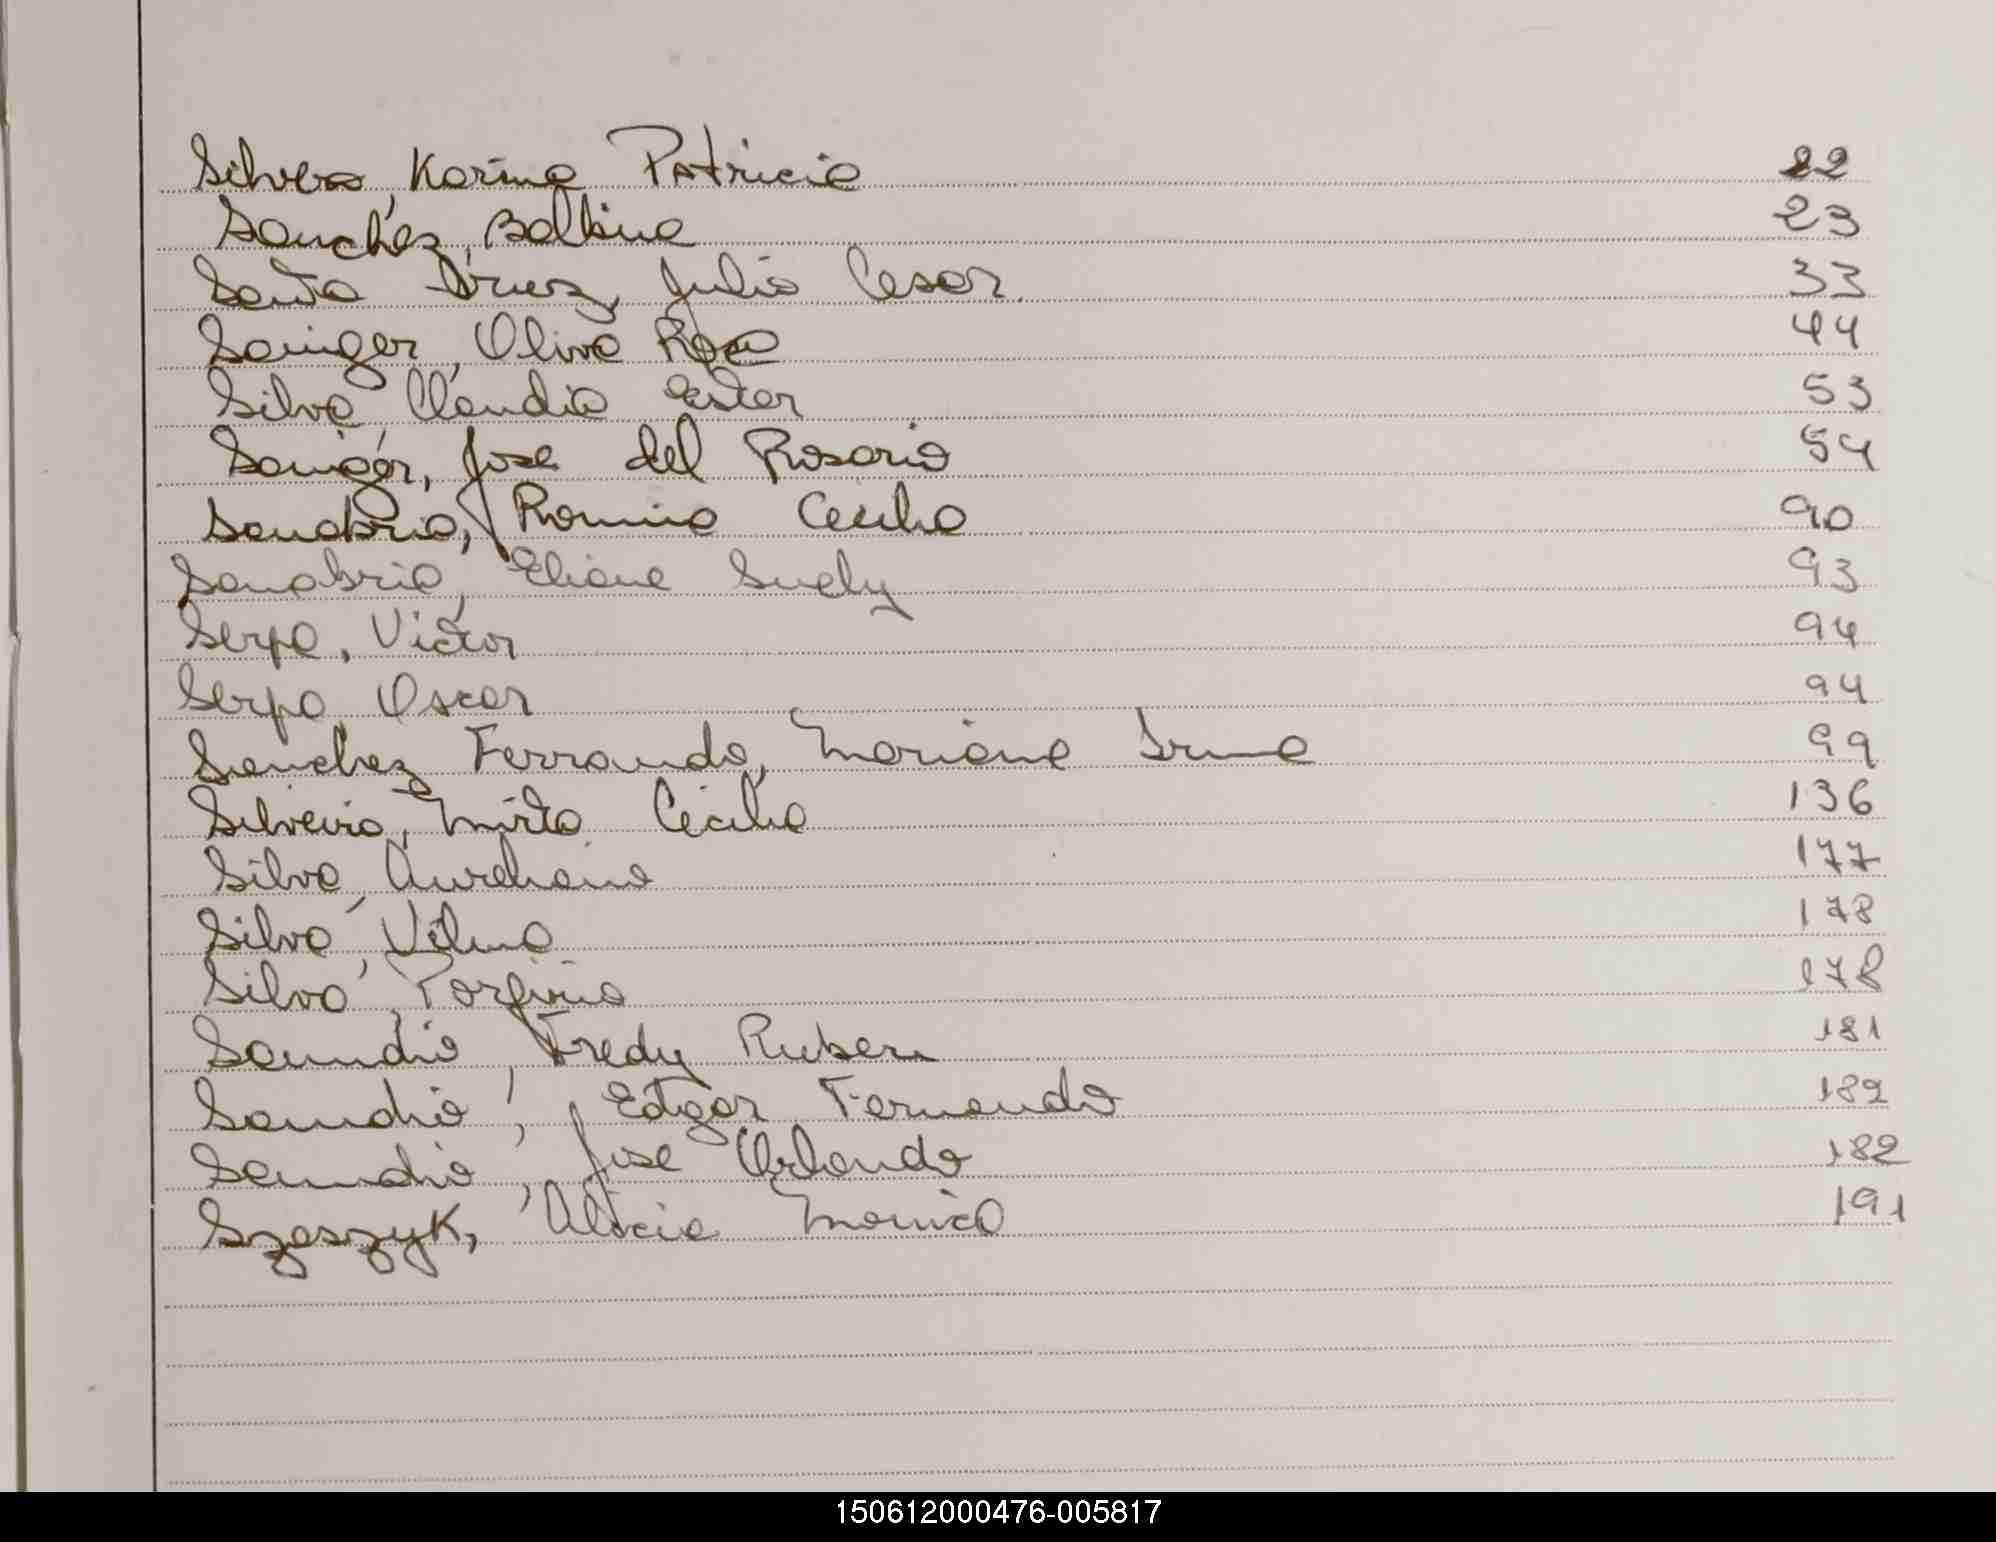 Silvera, Karina Patricia 22
Sanchez, Balbina 23
Santa Cruz, Julio Cesar 33
Saniger, Oliva Rosa 44
Silva, Claudia Ester 53
Saniger, Jose del Rosario 54
Sanabria, Romina Cecilia 90
Sanabria, Eliane Suely 93
Serpa, Victor 94
Serpa, Oscar 94
Sanchez Ferrando, Mariana Irma 99
Silveira, Mirta Cecilia 136
Silva, Aureliano 177
Silva, Vilma 178
Silva, Porfirio 178
Samudio, Fredy Ruben 181
Samudio, Edgar Fernando 182
Samudio, Jose Orlando 182
Szaszyk, Alicia Monica 191
150612000476-005817